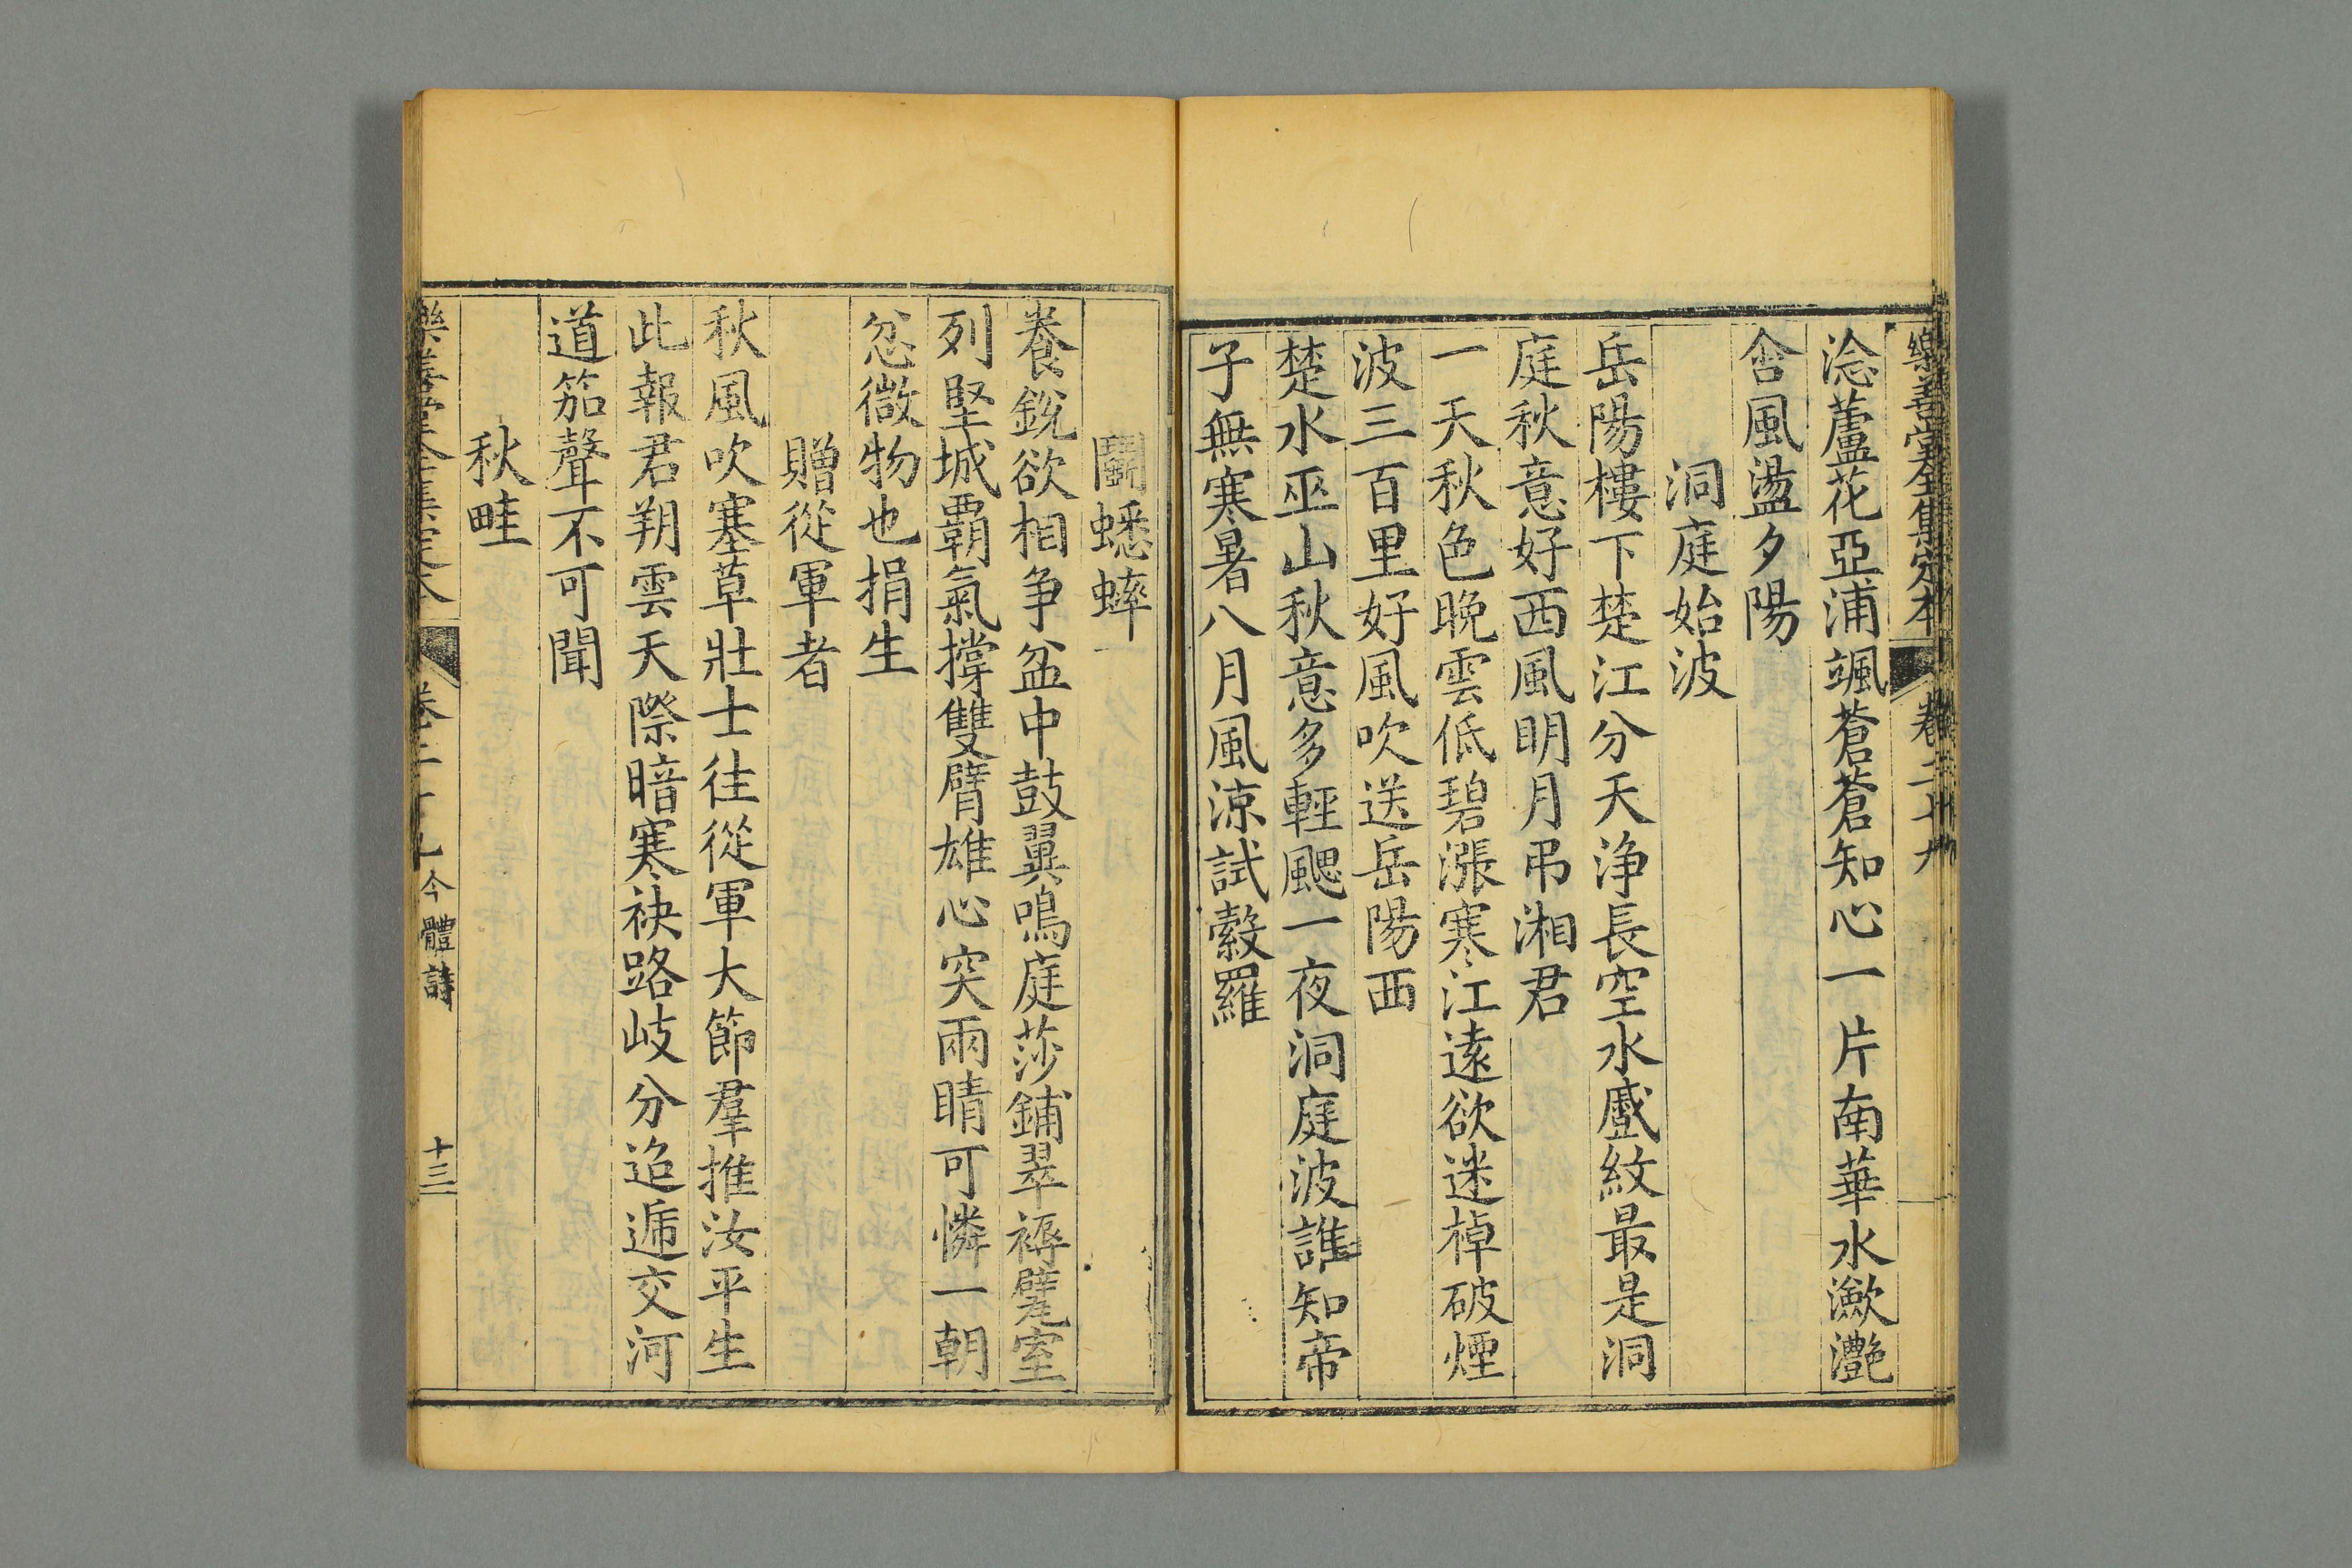 樂善堂全集定本 卷二十九
淰蘆花亞浦颯蒼蒼知心一片南華水瀲灧
含風盪夕陽
洞庭始波
岳陽樓下楚江分天净長空水蹙紋最是洞
庭秋意好西風明月弔湘君
一天秋色晚雲低碧漲寒江遠欲迷棹破煙
波三百里好風吹送岳陽西
楚水巫山秋意多輕颸一夜洞庭波誰知帝
子無寒暑八月風涼試縠羅
鬭蟋蟀
養銳欲相争盆中鼓翼鳴庭莎鋪翠褥甓室
列堅城覇氣撐雙臂雄心突兩睛可憐一朝
忿微物也捐生
贈從軍者
秋風吹塞草壯士往從軍大節羣推汝平生
此報君朔雲天際暗寒袂路岐分迨遞交河
道笳聲不可聞
秋畦
樂善堂全集定本 卷二十九 今體詩 十三